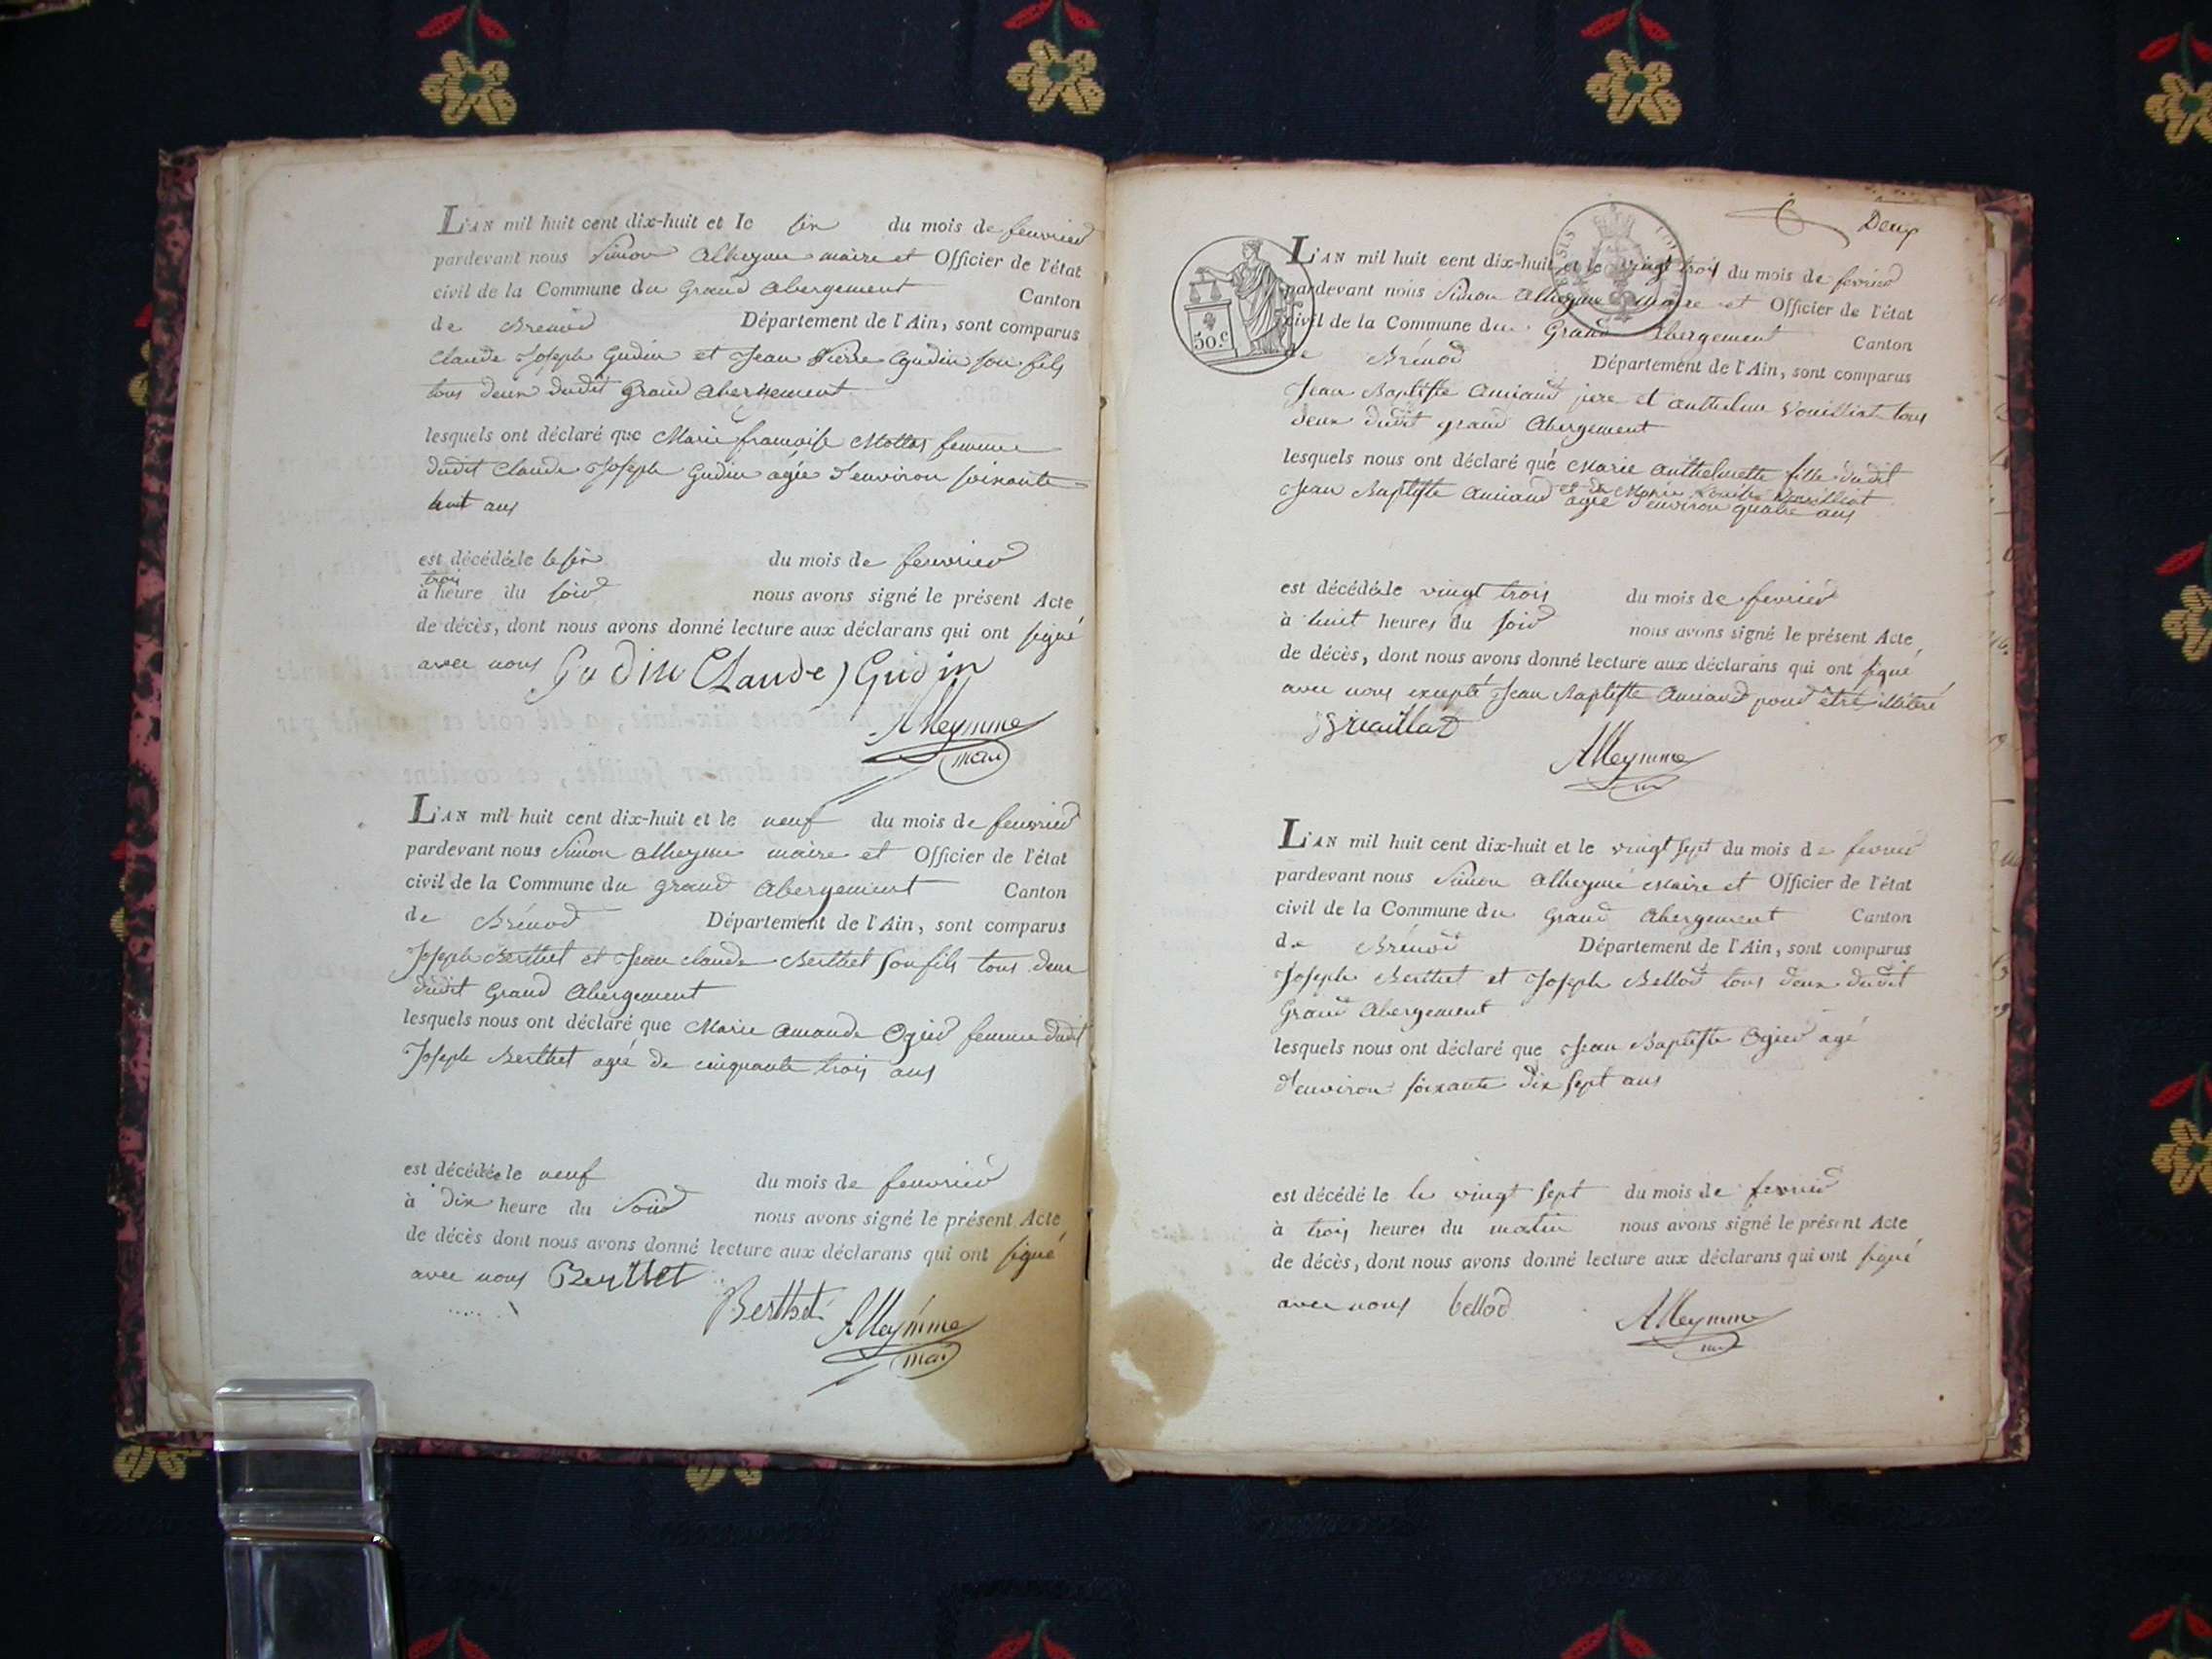 L'AN mil huit cent dix-huit et le six du mois de fevrier
pardevant nous Simon Alleyme maire et Officier de l'état
civil de la Commune du Grand Abergement Canton
de Brenod Département de l'Ain, sont comparus
Claude Joseph Gudin et Jean Pierre Gudin son fils
tous deux dudit Grand Abergement
lesquels ont déclaré que Marie françoise Mottas femme
dudit Claude Joseph Gudin agée d'environ soixante
huit ans
est décédée le le six du mois de fevrier
trois
à heure du soir nous avons signé le présent Acte
de décès, dont nous avons donné lecture aux déclarans qui ont signé
avec nous Gudin Claude J Gudin
Alleymme
mai
L'AN mil huit cent dix-huit et le neuf du mois de fevrier
pardevant nous Simon Alleyme maire et Officier de l'état
civil de la Commune du grand Abergement Canton
de Brénod Département de l'Ain, sont comparus
Joseph Berthet et Jean claude Berthet son fils tous deux
dudit Grand Abergement
lesquels nous ont déclaré que Marie Amande Ogier femme dudit
Joseph Berthet agée de cinquante trois ans
est décédée le neuf du mois de fevrier
à dix heure du Soir nous avons signé le présent Acte
de décès dont nous avons donné lecture aux déclarans qui ont signé
avec nous Berthet
Berthet Alleymme
mai
Deux
50.c
L'AN mil huit cent dix-huit et le vingt trois du mois de fevrier
pardevant nous Simon Alleyme maire et Officier de l'état
civil de la Commune du Grand Abergement Canton
de Brénod Département de l'Ain, sont comparus
Jean Baptiste Amiand pere et Anthelme Vouilliat tous
deux dudit grand Abergement
lesquels nous ont déclaré que Marie Anthelmette fille dudit
Jean Baptiste Amiand et de Marie
agée d'environ quatre ans
est décédée le vingt trois du mois de fevrier
à huit heures du soir nous avons signé le présent Acte
de décès, dont nous avons donné lecture aux déclarans qui ont signé
avec nous excepté Jean Baptiste Amiand pour être illiteré
Alleymme
L'AN mil huit cent dix-huit et le vingt sept du mois de fevrier
pardevant nous Simon Alleymé Maire et Officier de l'état
civil de la Commune du Grand Abergement Canton
de Brénod Département de l'Ain, sont comparus
Joseph Berthet et Joseph Bellod tous deux dudit
Grand Abergement
lesquels nous ont déclaré que Jean Baptiste Ogier agé
d'environ soixante dix sept ans
est décédé le le vingt sept du mois de fevrier
à trois heures du matin nous avons signé le présent Acte
de décès, dont nous avons donné lecture aux déclarans qui ont signé
avec nous bellod Alleymme